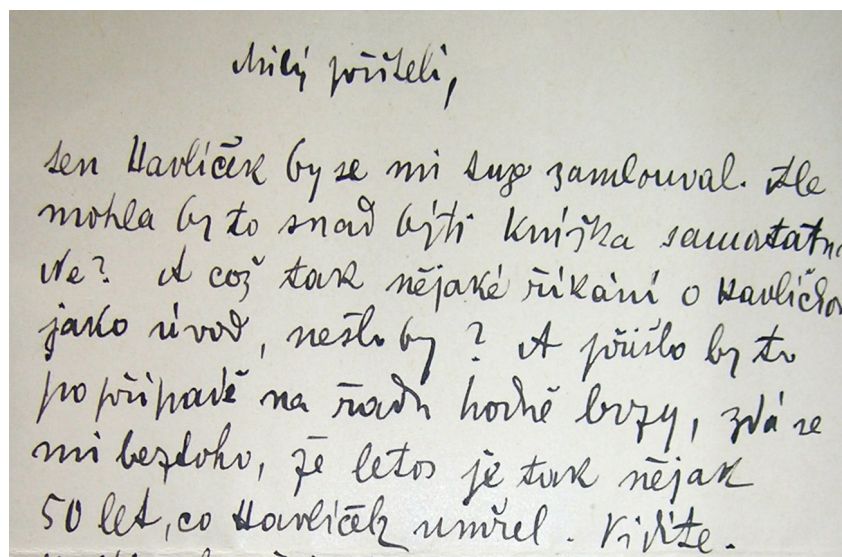 Milý příteli,
ten Havlíček by se mi tuze zamlouval. Ale
mohla by to snad býti knížka samotatn
Ne? A což tak nějaké říkání o Havlíčkov
jako úvod, nešlo by? A přišlo by to
po případě na řadu hodně brzy, zdá se
mi beztoho, že letos je tak nějak
50 let, co Havlíček umřel. Vidíte.